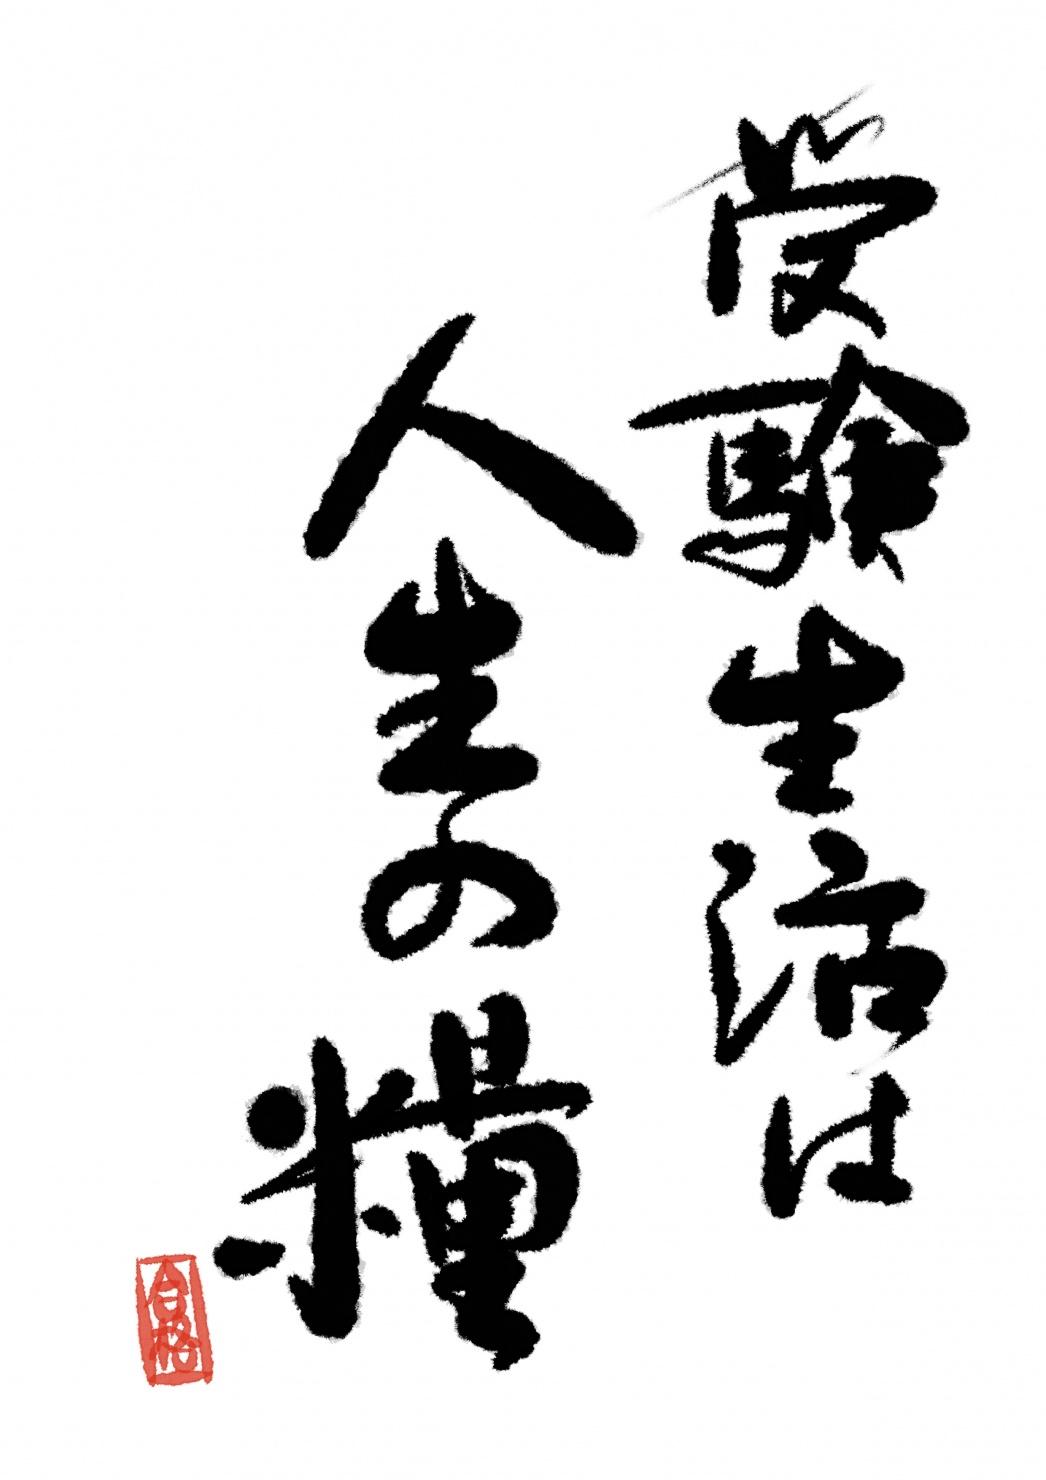 受験生活は
人生の糧
合格